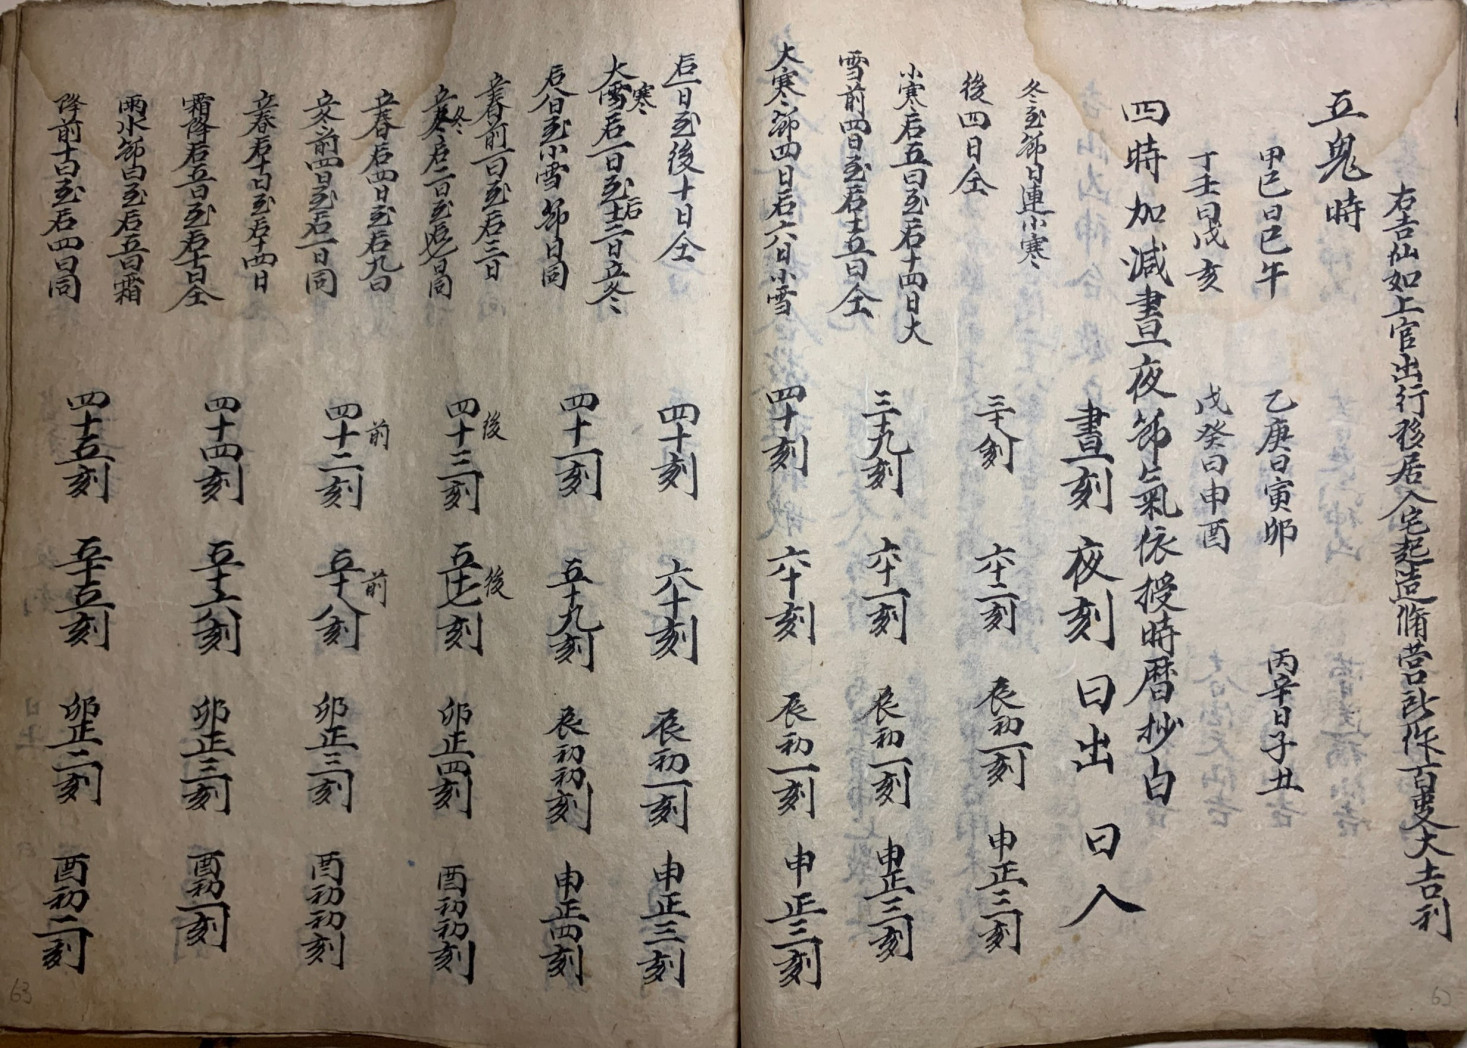 右吉仙如上官出行移居入宅起造脩营所作百事大吉利
五鬼時
甲己日巳午 乙庚日寅卯 丙辛日子丑
丁壬日戌亥 戊癸日申酉
四時加減晝夜節氣依授時曆抄白
晝刻 夜刻 日出 日入
冬至節日連小寒
後四日仝 三十八刻 六十二刻 辰初一刻 申正三刻
小寒后五日至后十四日大
雪前四日至后十五日仝 三十九刻 六十一刻 辰初一刻 申正三刻
大寒節四日后六日小雪 四十刻 六十刻 辰初一刻 申正三刻
后一日至後十日仝 四十刻 六十刻 辰初一刻 申正三刻
大寒后一日至后十三日立冬
后八日至小雪節日同 四十一刻 五十九刻 辰初初刻 申正四刻
立春前一日至后三日 後 後
立冬后二日至后七日同 四十三刻 五十七刻 卯正四刻 酉初初刻
立春后四日至后九日 前 前
立冬前四日至后一日同 四十二刻 五十八刻 卯正三刻 酉初初刻
立春后十日至后十四日
霜降后五日至后十日仝 四十四刻 五十六刻 卯正三刻 酉初一刻
雨水節日至后五日霜
降前十日至后四日同 四十五刻 五十五刻 卯正二刻 酉初二刻
63